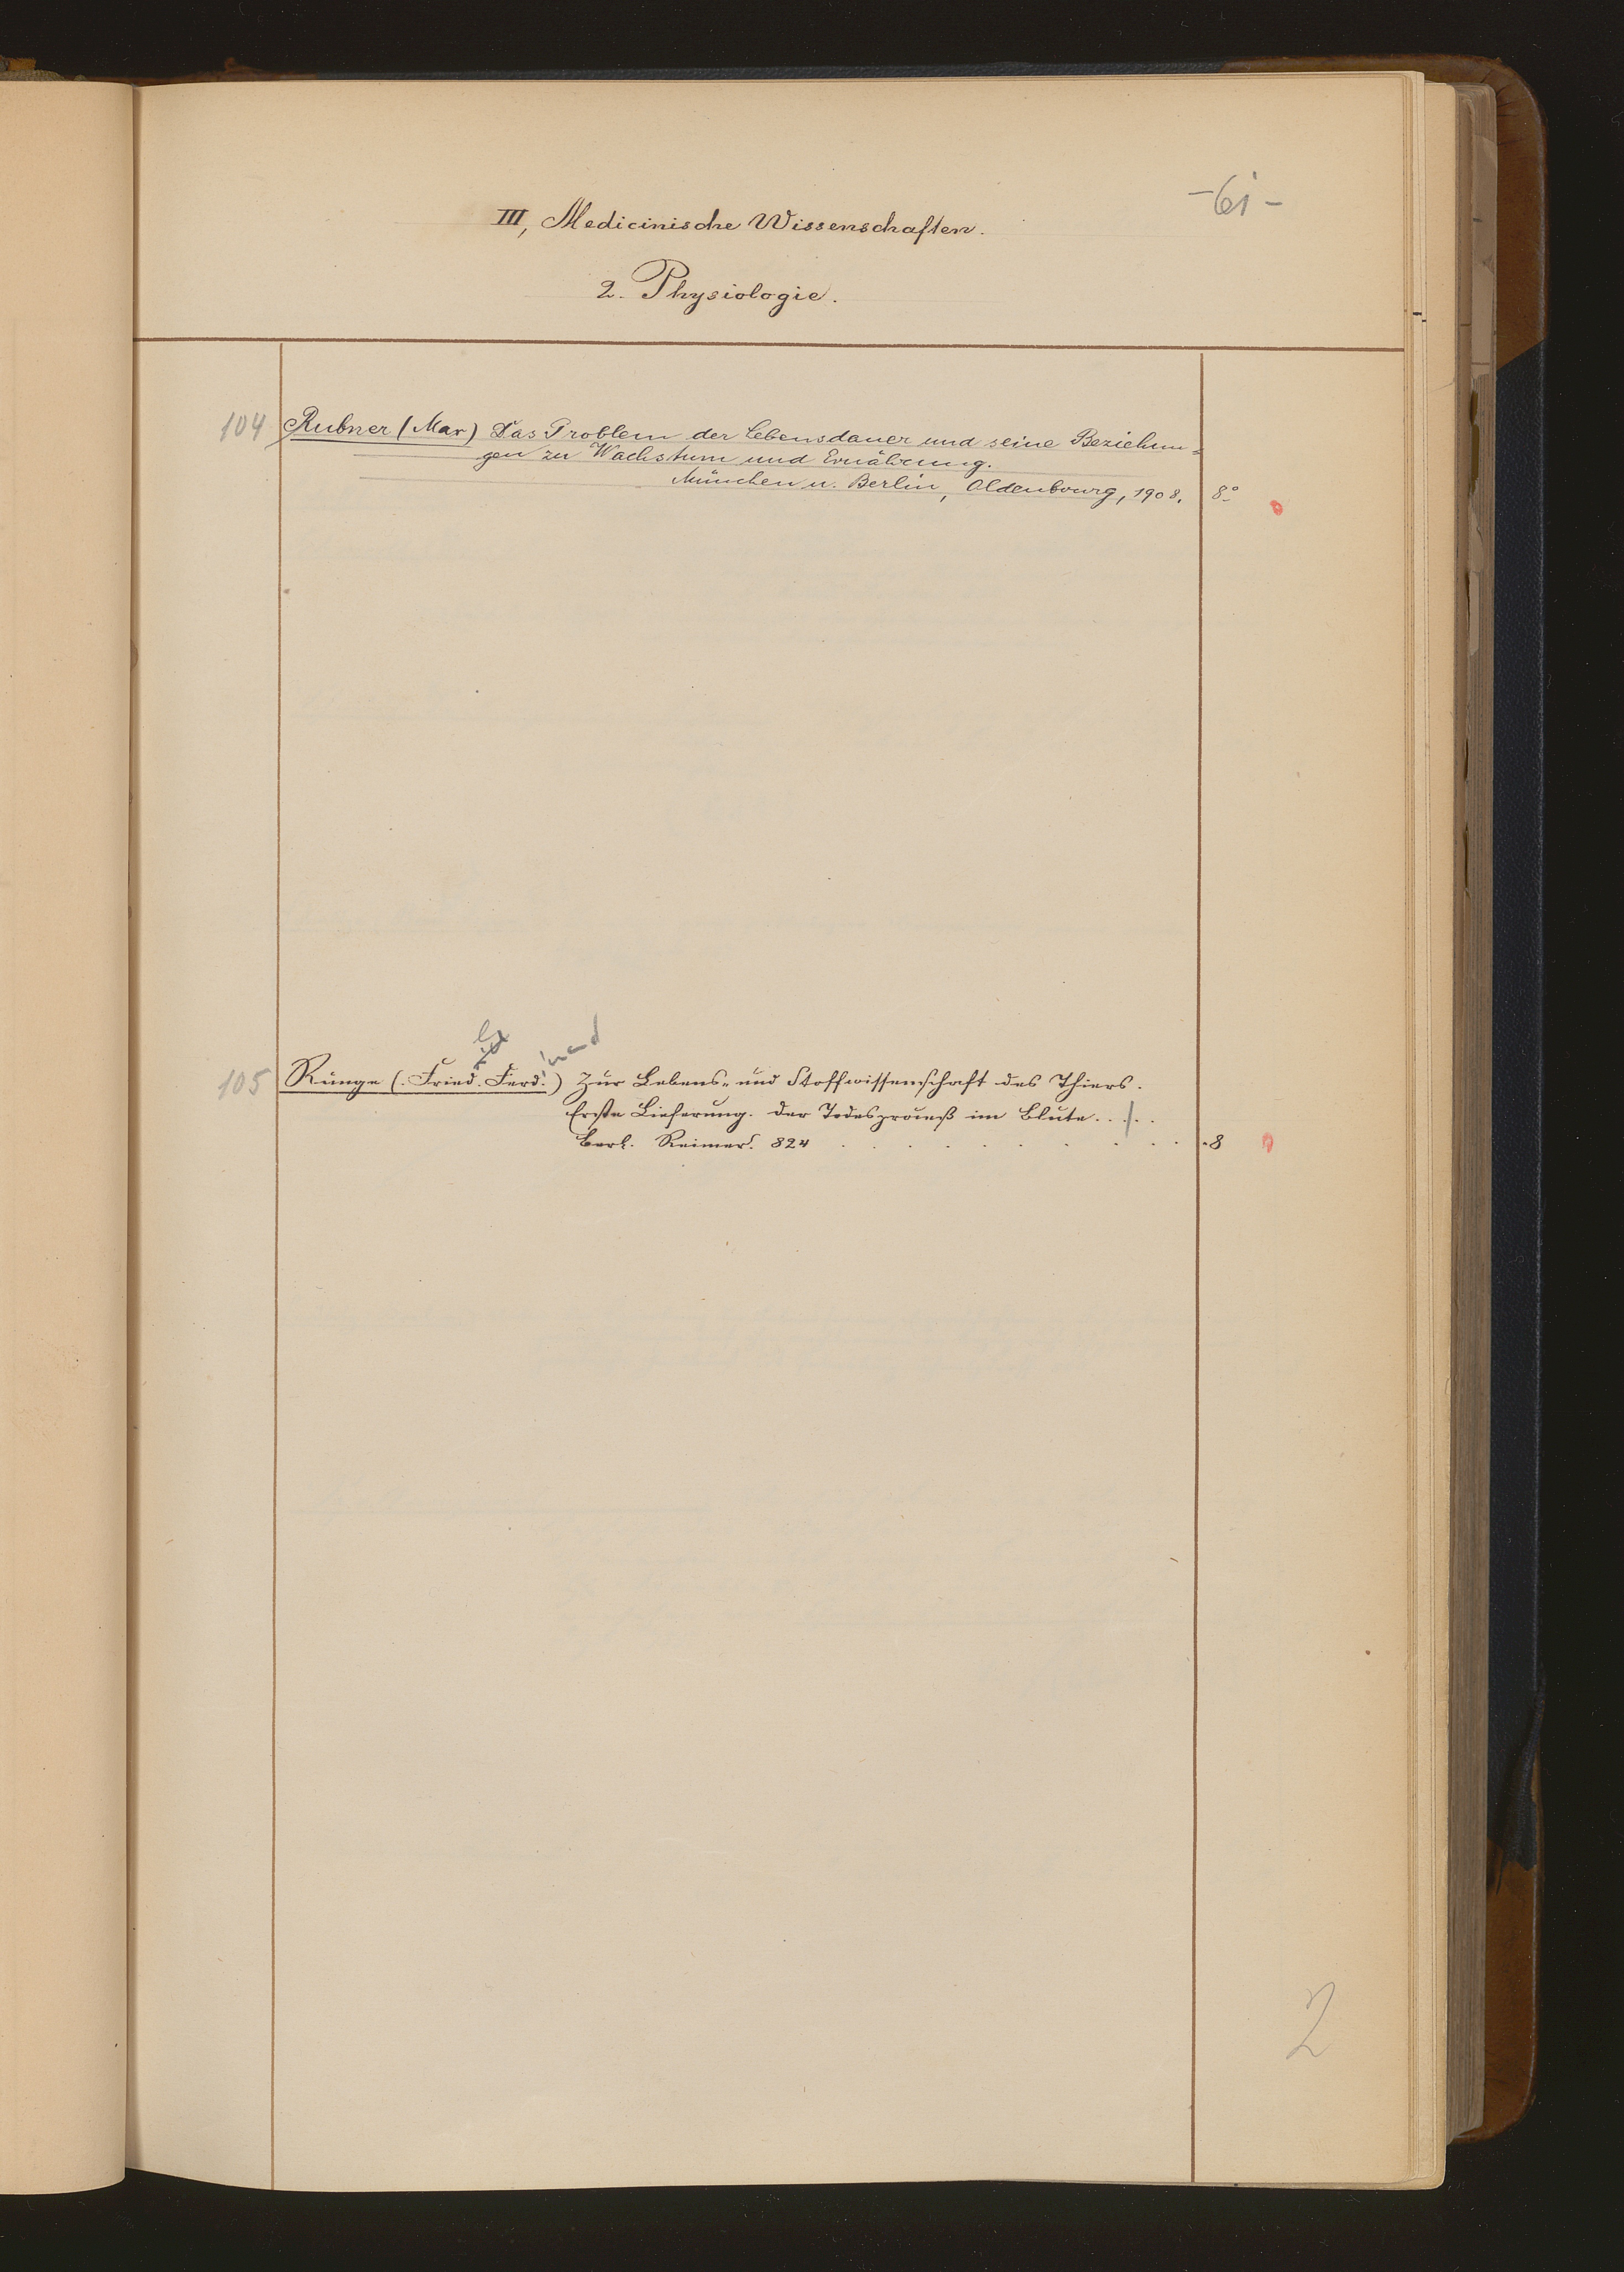 -61-
III, Medicinische Wissenschaften.
2. Physiologie.
104 Rubner (Max) Das Problem der Lebensdauer und seine Beziehun=
gen zu Wachstum und Ernährung.
München u. Berlin, Oldenbourg, 1908. 8°
inand
105 Runge (Fried. Ferd.) Zur Lebens- und Stoffwissenschaft des Thiers.
Erste Lieferung. Der Todesproceß im Blute. . . . .
Berl. Reimer. 824 . . . . . . . . . . 8
2